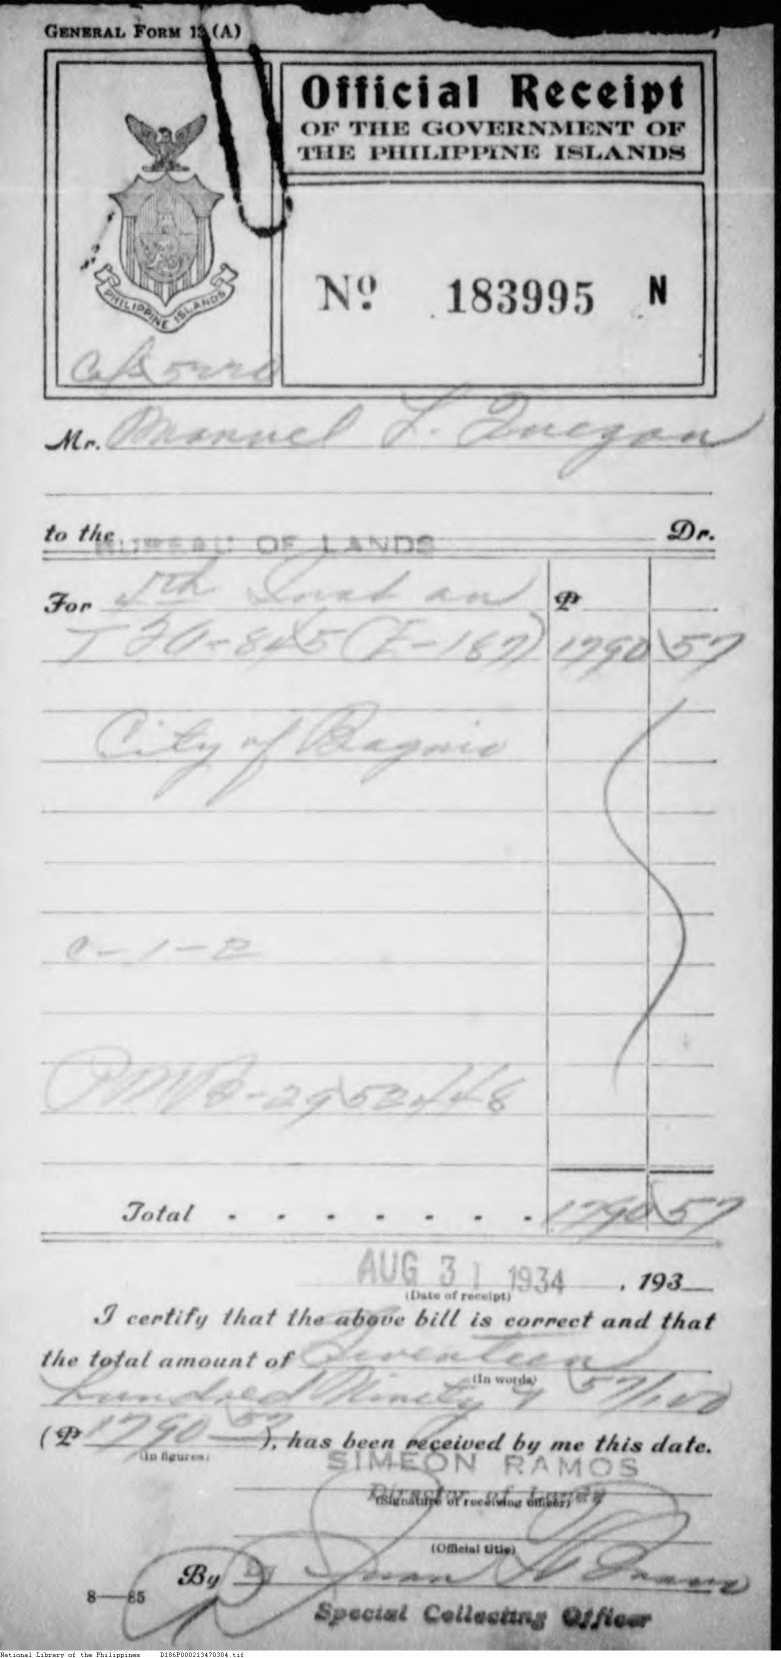 GENERAL FORM 13 (A)
Official Receipt
OF THE GOVERNMENT OF
THE PHILIPPINE ISLANDS
PHILIPPINE ISLANDS
Nº 183995 N
Mr. Manuel L. Quezon
to the BUREAU OF LANDS Dr.
For 5th Inst on ₱
(E-187) 1790 57
City of Baguio
C-1-2
Total . . . . . . . 1790 57
AUG 31 1934 , 193
(Date of receipt)
I certify that the above bill is correct and that
the total amount of Seventeen
(In words)
hundred Ninety & 57/100
(₱ 1790 57 ), has been received by me this date.
(In figures)
SIMEON RAMOS
Director of Lands
(Signature of receiving officer)
(Official title)
By By Juan
8—85
Special Collecting Officer
National Library of the Philippines D186P000213470304.tif